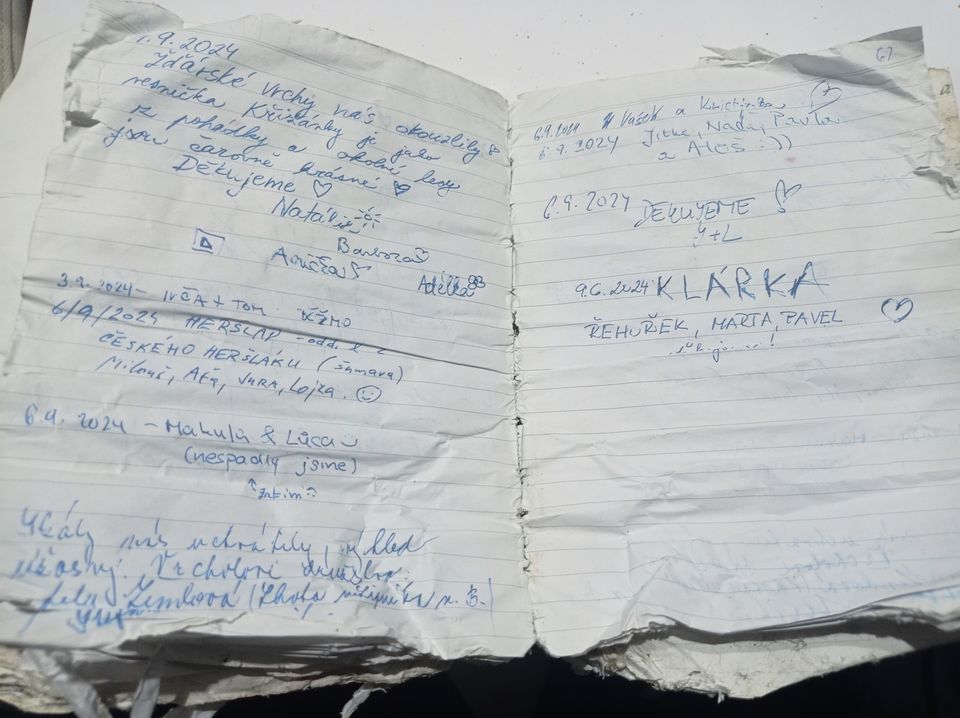 1.9.2024
Žďárské vrchy nás okouzlily
vesnička Křižánky je jako
z pohádky a okolní lesy
jsou čarovně krásné
Děkujeme
Natálie
Barbora
Anička
Adélka
3.9.2024 - IVČA + TOM
6/9/2024 HERŠLAP
ČESKÉHO HERŠLÁKU (Šumava)
JURA, Lojza.
6.9.2024 - Makula & Lůca
(nespadly jsme)
↑ zatím
Skály nás uchvátily, výhled
úžasný. Vrcholové družstvo
Zemlová (Lhota
67
6.9. Vašek a
6.9.2024 Jitka, Naďa, Pavla
a Aleš :))
6.9.2024 DĚKUJEME
Y+L
9.6.2024 KLÁRKA
ŘEHUŘEK, MARTA, PAVEL